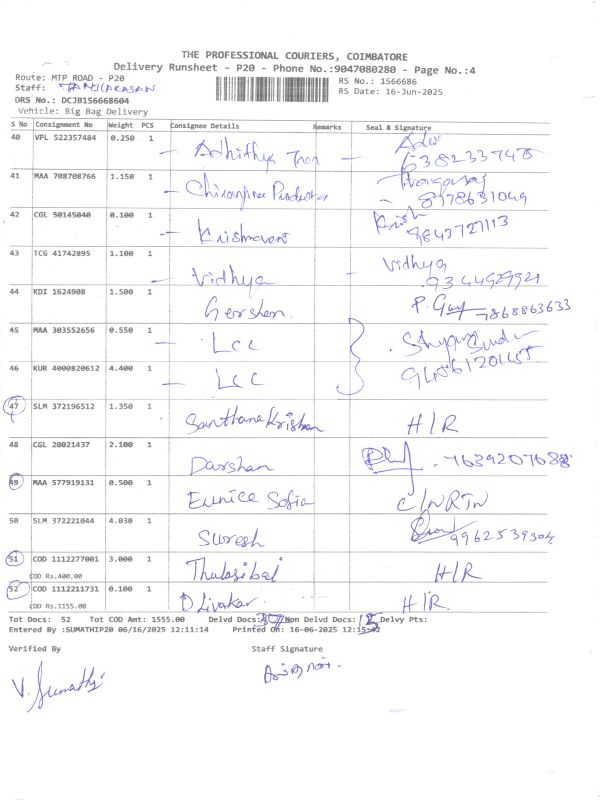 THE PROFESSIONAL COURIERS, COIMBATORE
Delivery Runsheet - P20 - Phone No.:9047080280 - Page No.:4
Route: MTP ROAD - P20
RS No.: 1566686
Staff: TAMILARASAN
RS Date: 16-Jun-2025
DRS No.: DCJB156668604
Vehicle: Big Bag Delivery
S No Consignment No Weight PCS Consignee Details Remarks Seal & Signature
40 VPL 522357484 0.250 1
Adhithya
41 MAA 708708766 1.150 1
8178631049
42 CGL 50145040 0.100 1 Krish
Krishnaveni 9843727113
43 TCG 41742895 1.100 1 Vidhya
Vidhya
44 KDI 1624908 1.500 1
Gershon. 7868863633
45 MAA 303552656 0.550 1
LCC
46 KUR 4000820612 4.400 1
LCC
47 SLM 372196512 1.350 1
Santhana Krishnan H/R
48 CGL 20021437 2.100 1
Darshan
49 MAA 577919131 0.500 1
Eunice Sofia
50 SLM 372221044 4.030 1
Suresh 9962539304
51 COD 1112277001 3.000 1
COD Rs.400.00 Thulasibai H/R
52 COD 1112211731 0.100 1
COD Rs.1155.00 Divakar. H/R.
Tot Docs: 52 Tot COD Amt: 1555.00 Delvd Docs: 37 Non Delvd Docs: 15 Delvy Pts:
Entered By :SUMATHIP20 06/16/2025 12:11:14 Printed On: 16-06-2025 12:15:42
Verified By Staff Signature
V. Sumathi